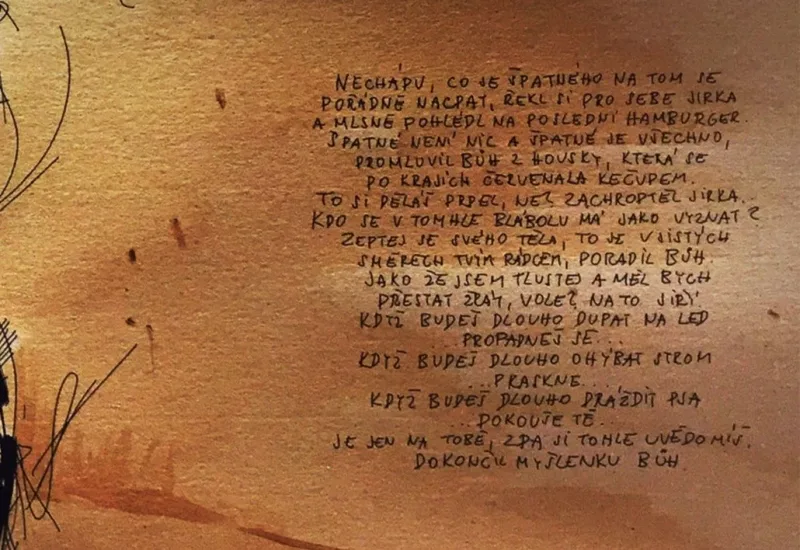 NECHÁPU, CO JE ŠPATNÉHO NA TOM SE
POŘÁDNĚ NACPAT, ŘEKL SI PRO SEBE JIRKA
A MLSNĚ POHLÉDL NA POSLEDNÍ HAMBURGER.
ŠPATNÉ NENÍ NIC A ŠPATNÉ JE VŠECHNO,
PROMLUVIL BŮH Z HOUSKY, KTERÁ SE
PO KRAJÍCH ČERVENALA KEČUPEM.
TO SI DĚLÁŠ PRDEL, NE? ZACHROPTĚL JIRKA.
KDO SE V TOMHLE BLÁBOLU MÁ JAKO VYZNAT?
ZEPTEJ SE SVÉHO TĚLA, TO JE V JISTÝCH
SMĚRECH TVÝM RÁDCEM, PORADIL BŮH.
JAKO ŽE JSEM TLUSTEJ A MĚL BYCH
PŘESTAT ŽRÁT, VOLE? NA TO JIŘÍ.
KDYŽ BUDEŠ DLOUHO DUPAT NA LED
...PROPADNEŠ SE...
KDYŽ BUDEŠ DLOUHO OHÝBAT STROM
...PRASKNE...
KDYŽ BUDEŠ DLOUHO DRÁŽDIT PSA
...POKOUŠE TĚ.
JE JEN NA TOBĚ, ZDA SI TOHLE UVĚDOMÍŠ,
DOKONČIL MYŠLENKU BŮH